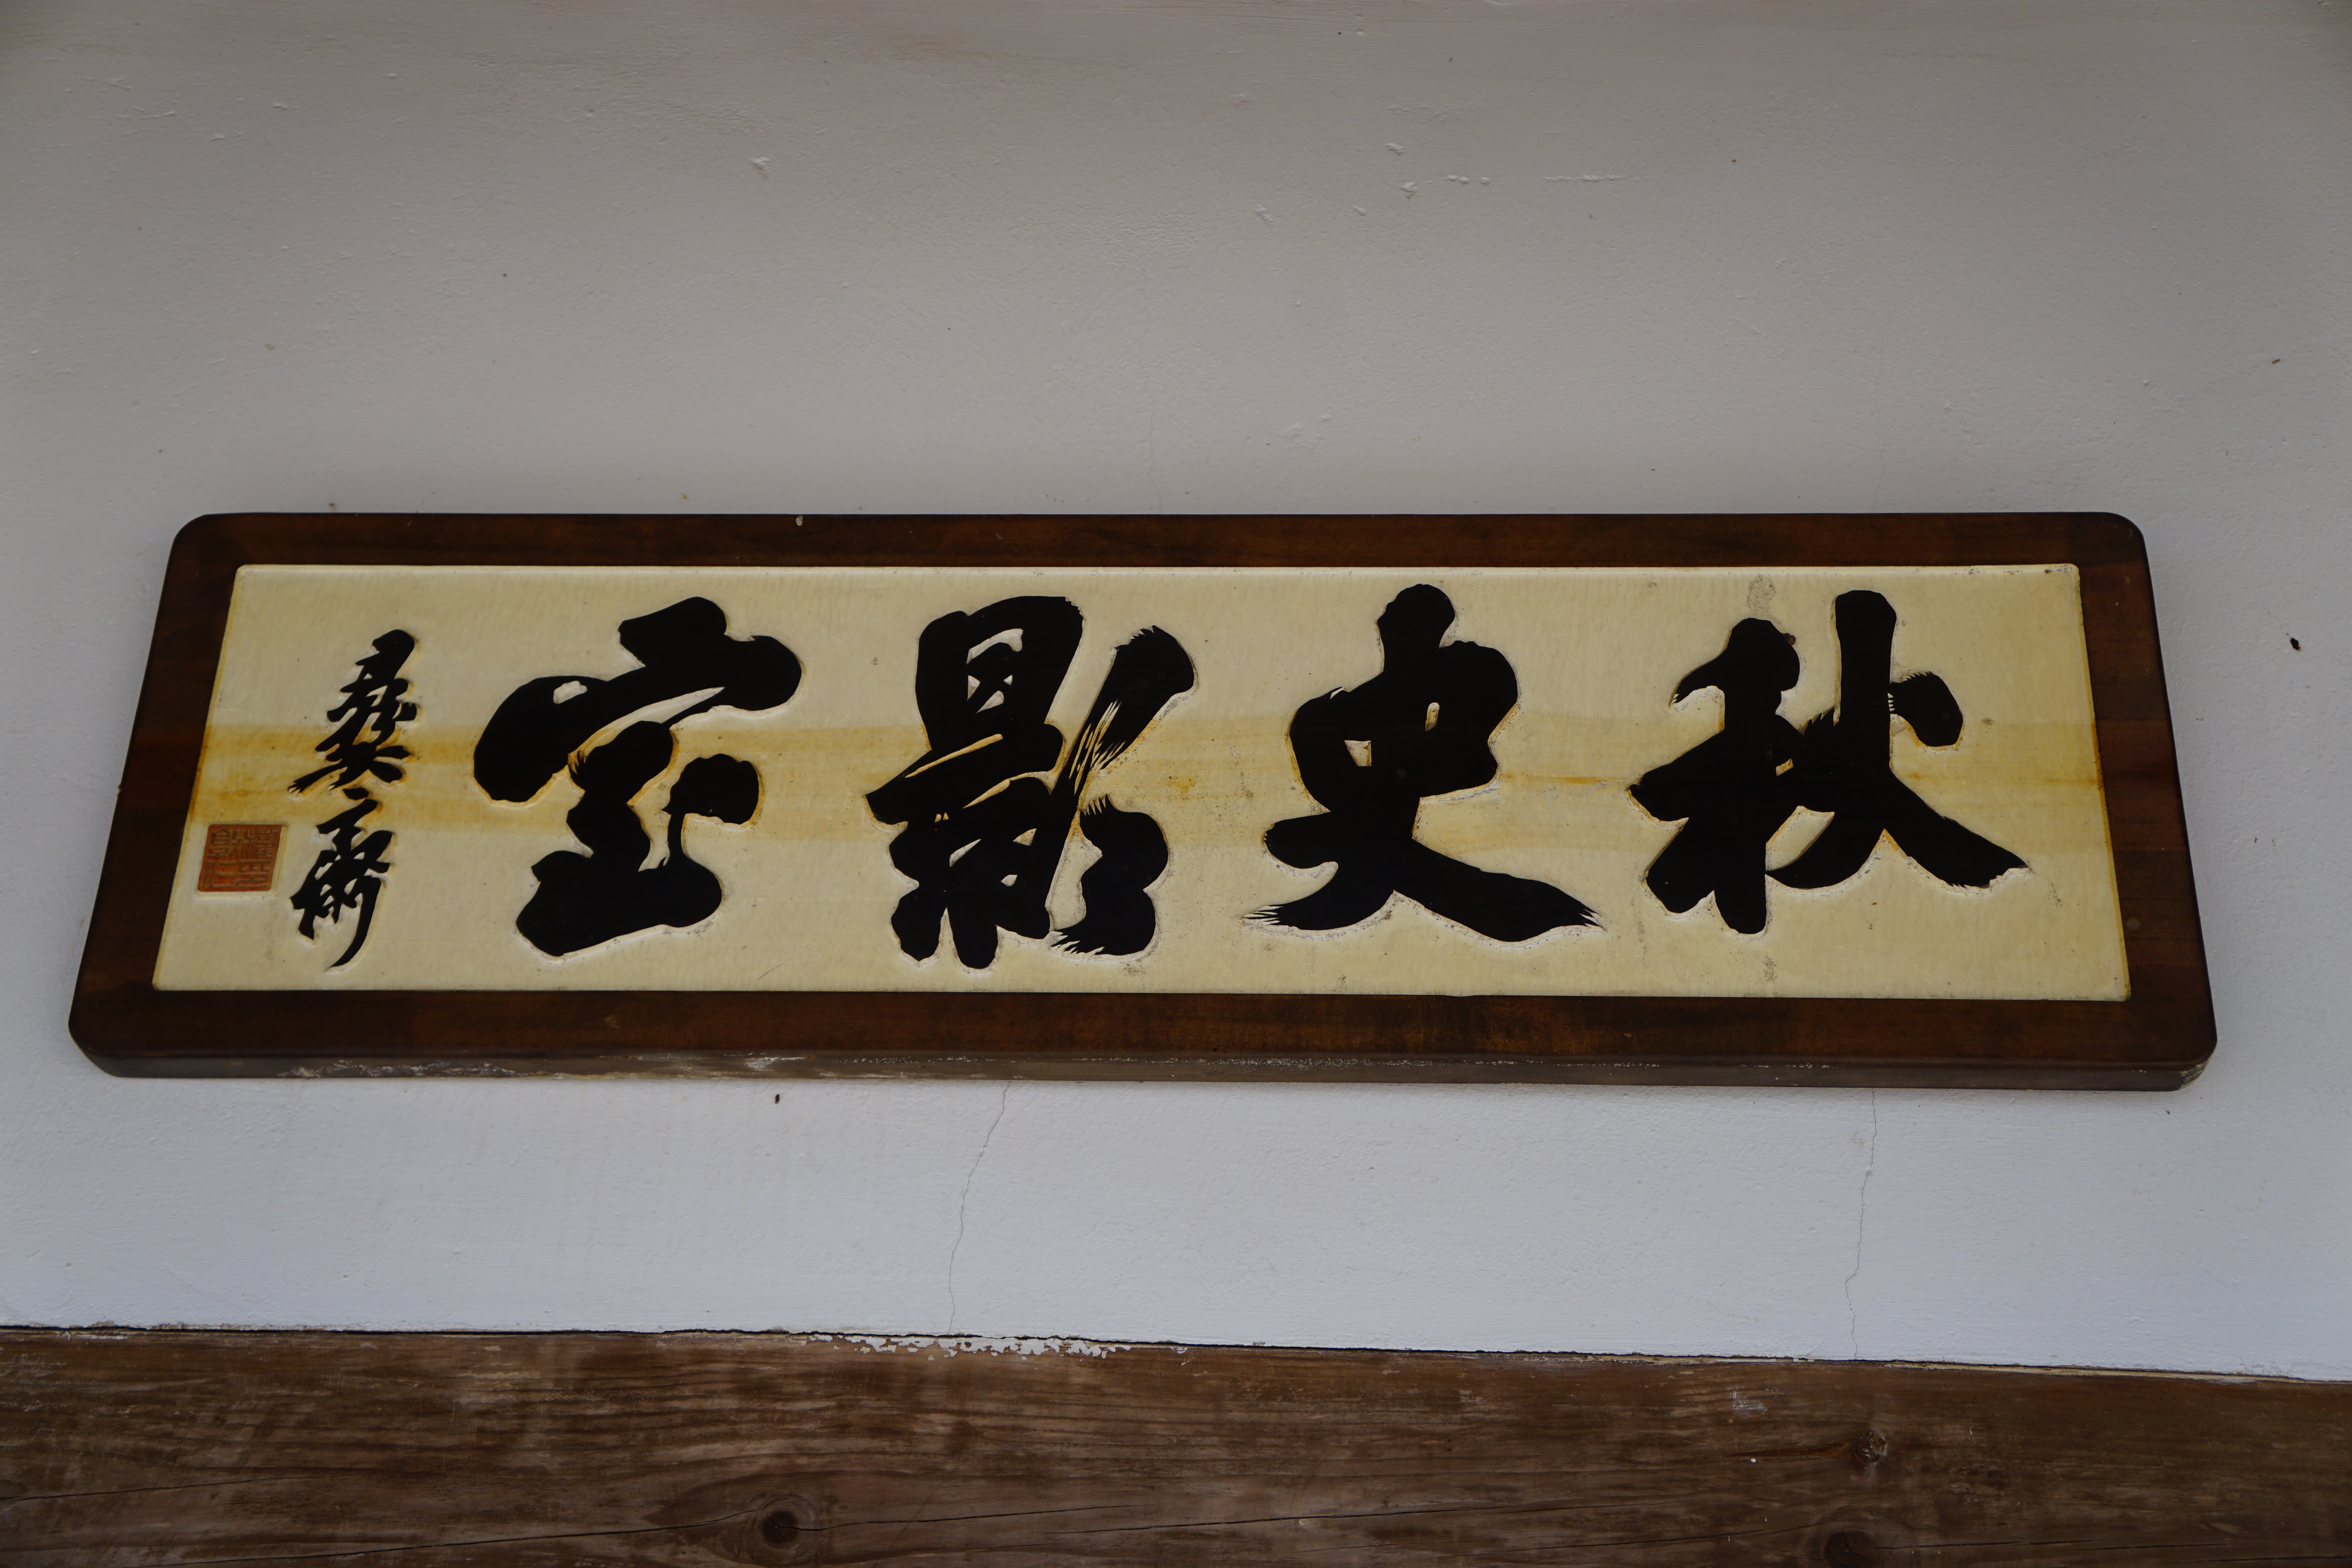 秋史影室